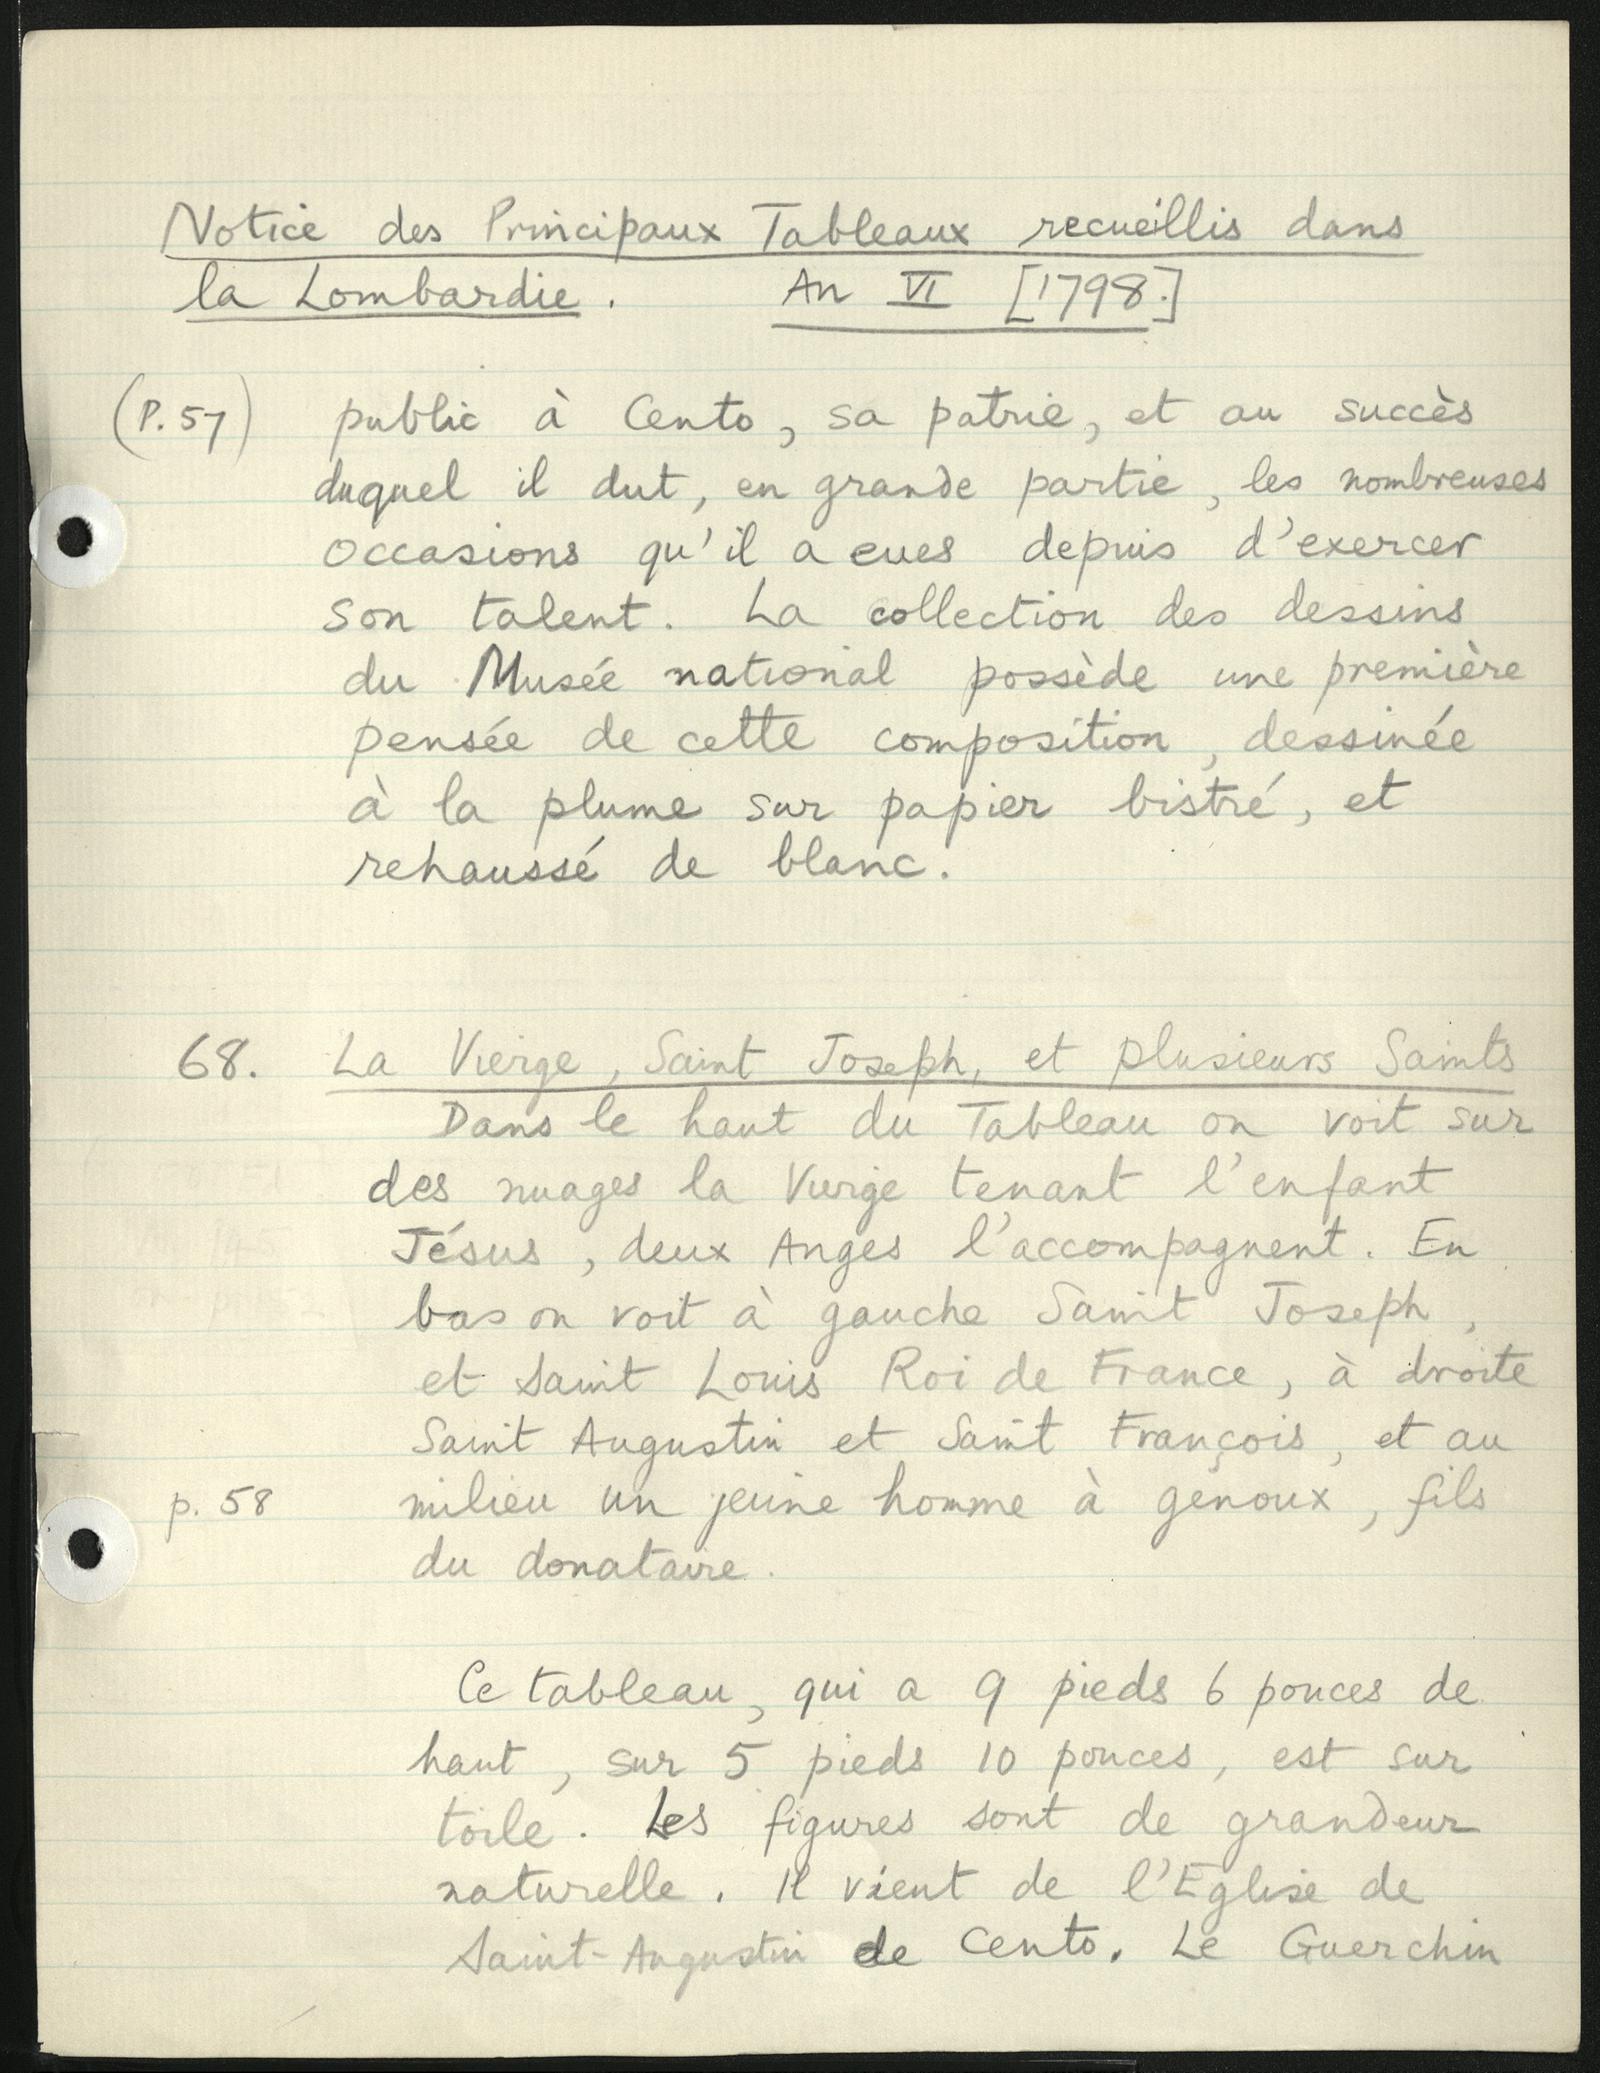 Notice des Principaux Tableaux recueillis dans
la Lombardie. An VI [1798.]
(P. 57) public à Cento, sa patrie, et au succès
duquel il dut, en grande partie, les nombreuses
occasions qu'il a eues depuis d'exercer
son talent. La collection des dessins
du Musée national possède une première
pensée de cette composition, dessinée
à la plume sur papier bistré, et
rehaussé de blanc.
68. La Vierge, Saint Joseph, et plusieurs Saints
Dans le haut du Tableau on voit sur
des nuages la Vierge tenant l'enfant
Jésus, deux Anges l'accompagnent. En
bas on voit à gauche Saint Joseph,
et Saint Louis Roi de France, à droite
Saint Augustin et Saint François, et au
p. 58 milieu un jeune homme à genoux, fils
du donataire.
Ce tableau, qui a 9 pieds 6 pouces de
haut, sur 5 pieds 10 pouces, est sur
toile. Les figures sont de grandeur
naturelle. Il vient de l'Eglise de
Saint-Augustin de Cento. Le Guerchin